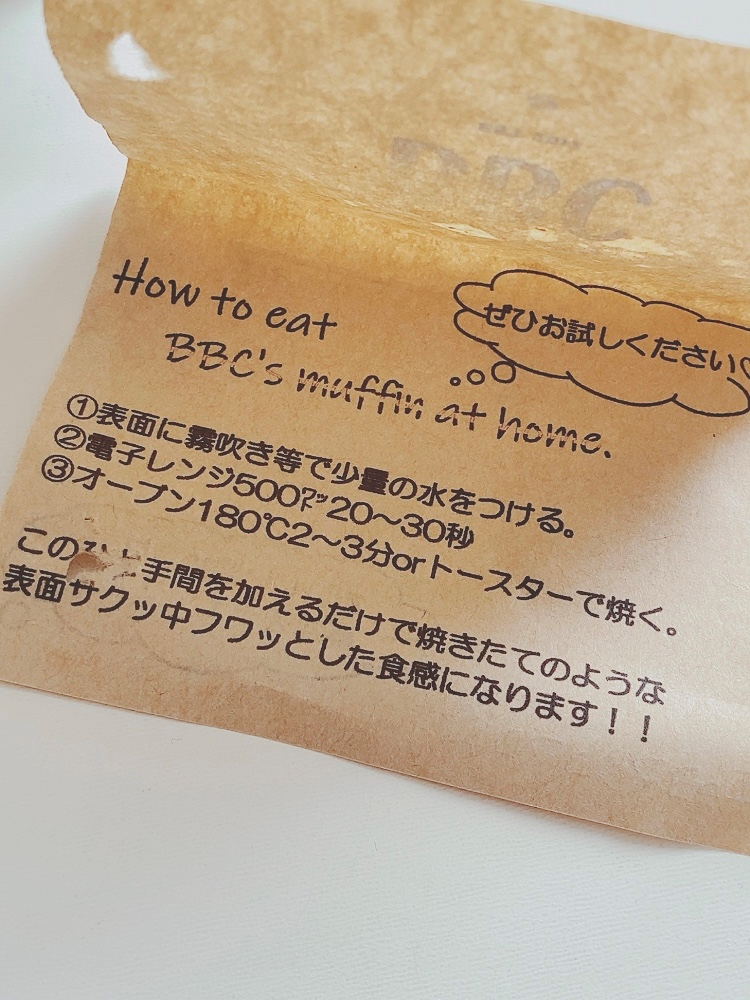 BBC
How to eat
BBC's muffin at home.
ぜひお試しください♡
①表面に霧吹き等で少量の水をつける。
②電子レンジ500㍗20〜30秒
③オーブン180℃2〜3分orトースターで焼く。
この 手間を加えるだけで焼きたてのような
表面サクッ中フワッとした食感になります！！